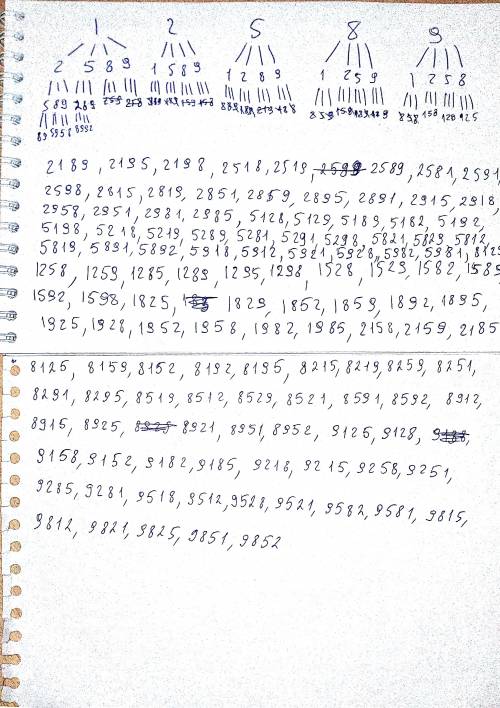 1 2 5 8 9
2 5 8 9 1 5 8 9 1 2 8 9 1 2 5 9 1 2 5 8
2189, 2195, 2198, 2518, 2519, 2589, 2581, 2591,
2598, 2815, 2819, 2851, 2859, 2895, 2891, 2915, 2918,
2958, 2951, 2981, 2985, 5128, 5129, 5189, 5182, 5192,
5198, 5218, 5219, 5289, 5281, 5291, 5298, 5821, 5829, 5812,
5819, 5891, 5892, 5918, 5912, 5921, 5928, 5982, 5981, 8129
1258, 1259, 1285, 1289, 1295, 1298, 1528, 1529, 1582, 1589
1592, 1598, 1825, 1829, 1852, 1859, 1892, 1895,
1925, 1928, 1952, 1958, 1982, 1985, 2158, 2159, 2185
8125, 8159, 8152, 8192, 8195, 8215, 8219, 8259, 8251,
8291, 8295, 8519, 8512, 8529, 8521, 8591, 8592, 8912,
8915, 8925, 8921, 8951, 8952, 9125, 9128,
9158, 9152, 9182, 9185, 9218, 9215, 9258, 9251,
9285, 9281, 9518, 9512, 9528, 9521, 9582, 9581, 9815,
9812, 9821, 9825, 9851, 9852